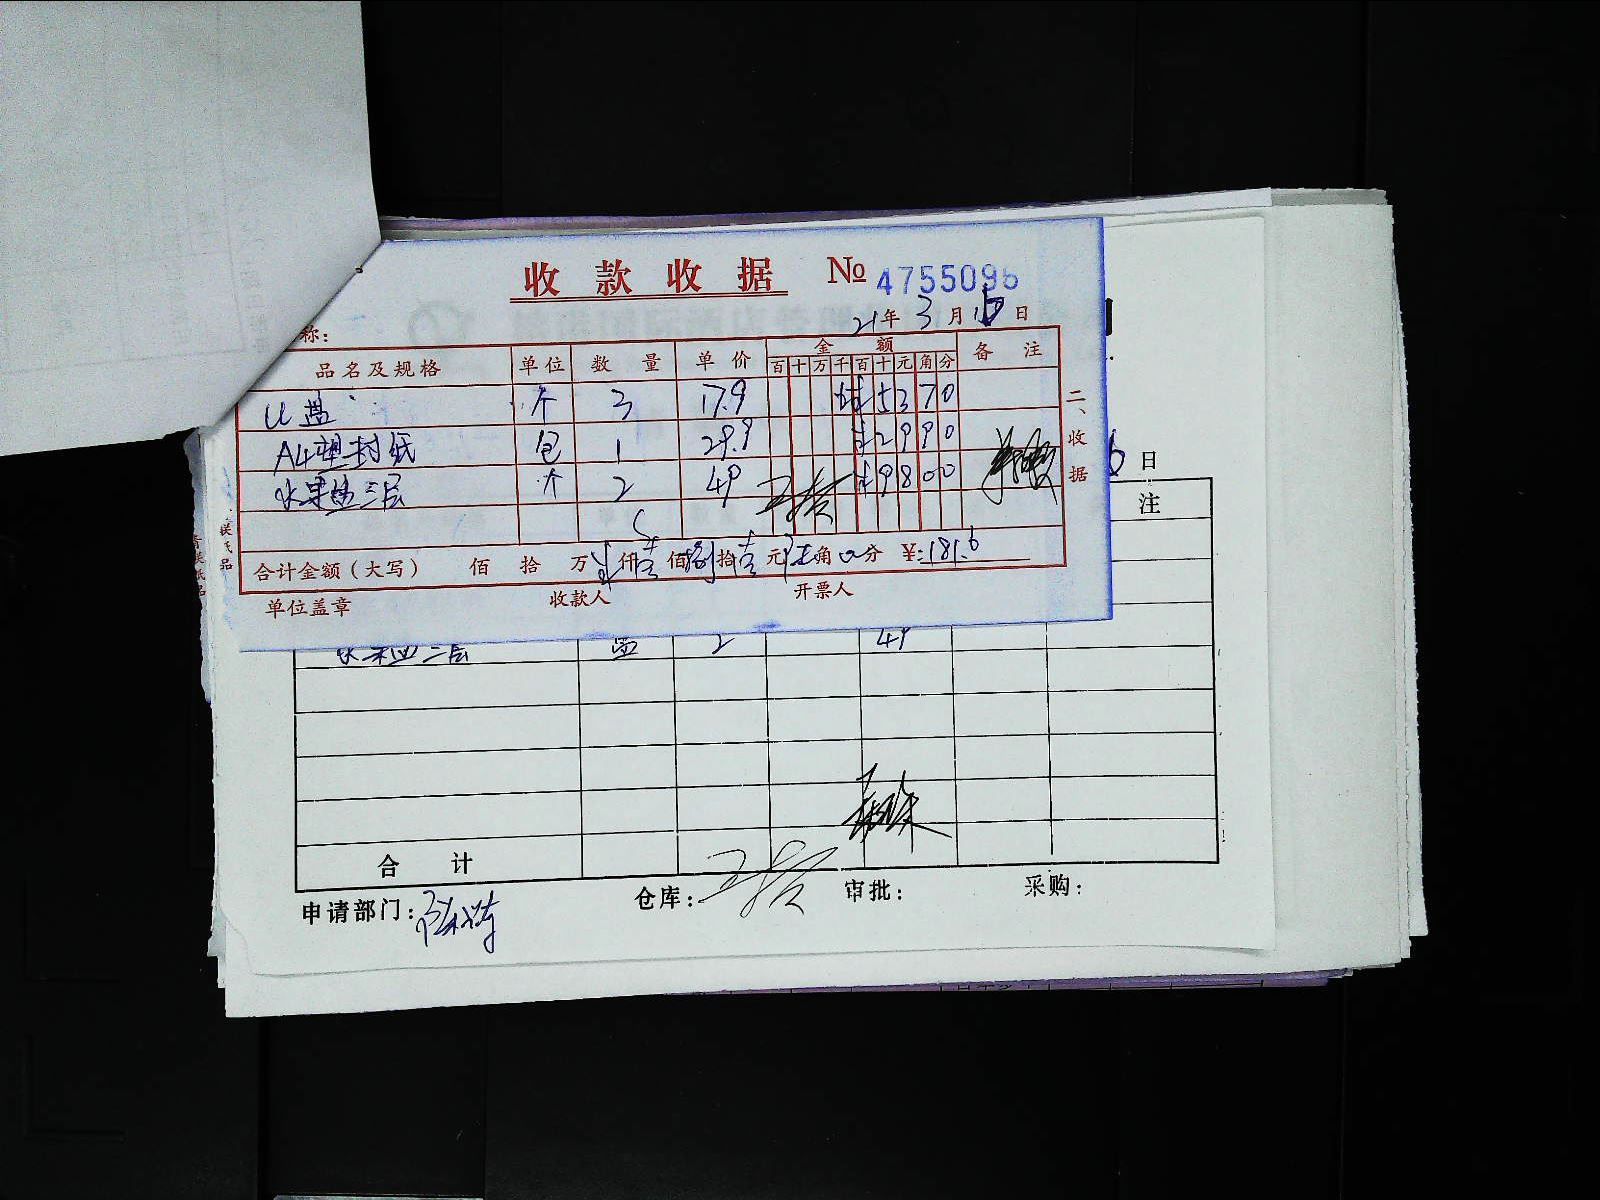 收款收据 № 4755096
称:
21年3月16日
品名及规格 单位 数量 单价 金额 备注
百十万千百十元角分
U盘 个 3 17.9 ¥5370
A4塑封纸 包 1 29.9 ¥2990
水果盘三层 个 2 49 ¥9800
合计金额(大写) 佰 拾 万 仟壹佰捌拾壹元陆角0分 ¥:181.6
单位盖章 收款人 开票人
二、收据
日
注
水果盘三层 2 49
合计
申请部门: 仓库: 审批: 采购: